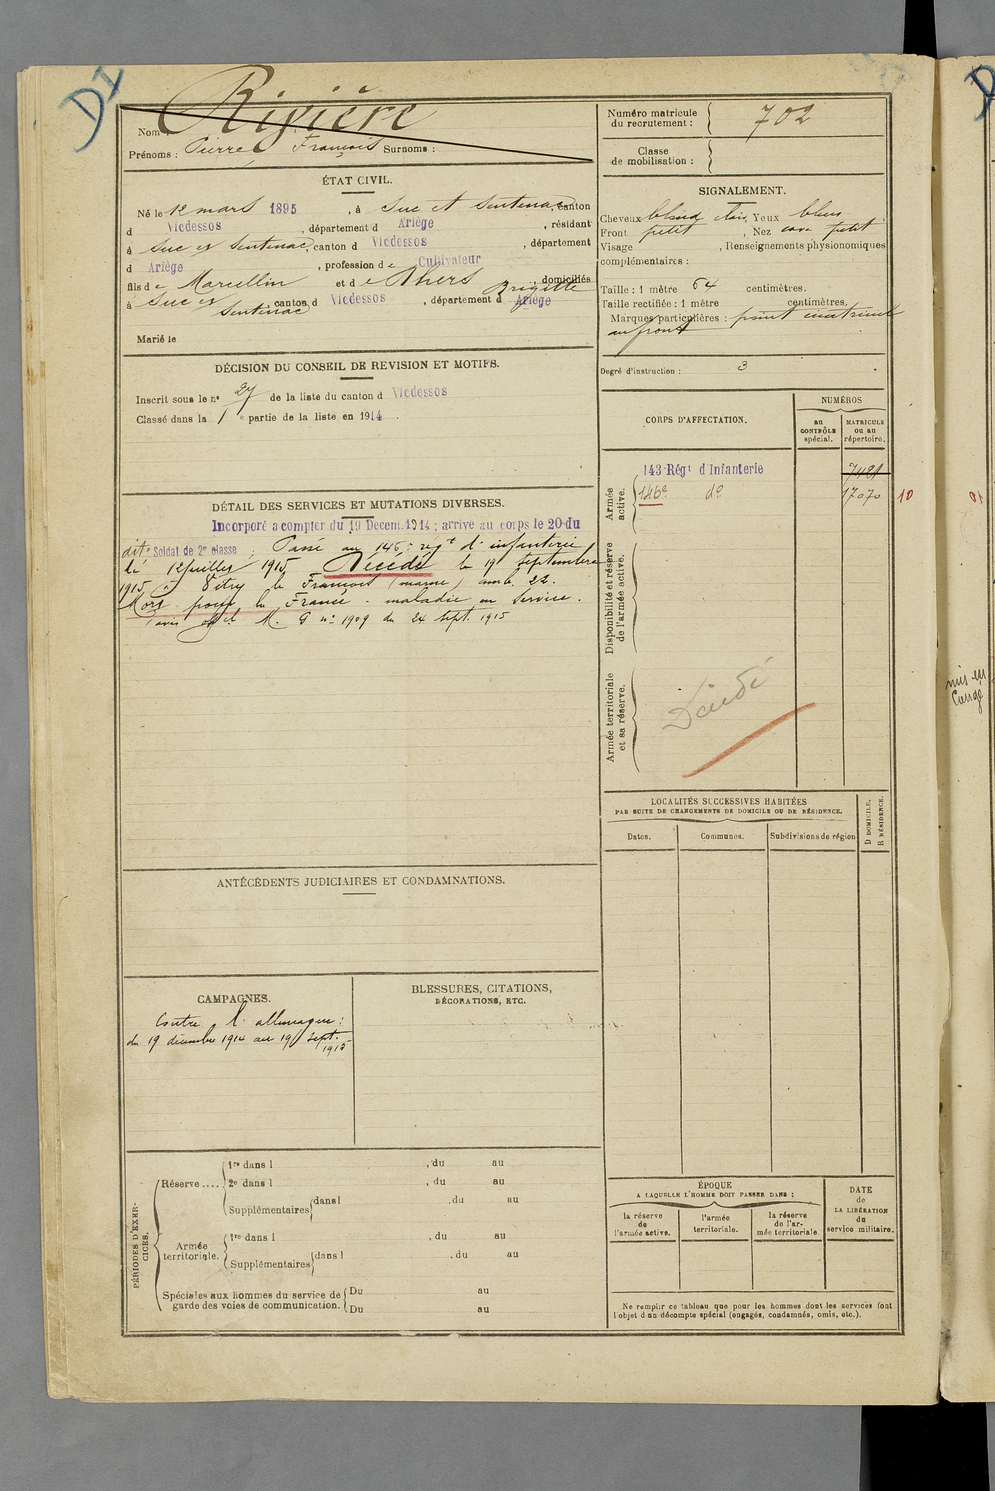 DI
Nom Rivière
Prénoms : Pierre François Surnoms :
Numéro matricule
du recrutement : 702
Classe
de mobilisation :
ÉTAT CIVIL.
Né le 12 mars 1895, à Suc et Sentenac, canton
d Vicdessos, département d Ariège, résidant
à Suc et Sentenac, canton d Vicdessos, département
d Ariège, profession de Cultivateur
fils de Marcellin et de Brigitte, domiciliés
à Suc et Sentenac canton d Vicdessos, département d Ariège
Marié le
SIGNALEMENT.
Cheveux blond clair, Yeux bleus
Front petit, Nez cave petit
Visage , Renseignements physionomiques
complémentaires :
Taille : 1 mètre 64 centimètres.
Taille rectifiée : 1 mètre centimètres.
Marques particulières : point
au front
Degré d'instruction : 3
DÉCISION DU CONSEIL DE REVISION ET MOTIFS.
Inscrit sous le nº 27 de la liste du canton d Vicdessos
Classé dans la 1e partie de la liste en 1914
DÉTAIL DES SERVICES ET MUTATIONS DIVERSES.
Incorporé a compter du 19 Decem. 1914 ; arrivé au corps le 20 du
dit. Soldat de 2e classe ; Passé au 146e regt d'infanterie
le 12 juillet 1915 Décédé le 19 septembre
1915 à Vitry le François (marne) amb. 22.
Mort pour la France - maladie en service.
(avis off. M. G nº 1909 du 24 sept. 1915
CORPS D'AFFECTATION.
NUMÉROS
au
CONTRÔLE
spécial.
MATRICULE
ou au
répertoire.
Armée
active.
143 Régt d'Infanterie 7481
146e do 17070 10
Disponibilité et réserve
de l'armée active.
Armée territoriale
et sa réserve.
Décédé
LOCALITÉS SUCCESSIVES HABITÉES
PAR SUITE DE CHANGEMENTS DE DOMICILE OU DE RÉSIDENCE.
Dates.
Communes.
Subdivisions de région
D DOMICILE.
R RÉSIDENCE.
ANTÉCÉDENTS JUDICIAIRES ET CONDAMNATIONS.
CAMPAGNES.
Contre l'allemagne :
du 19 décembre 1914 au 19 sept.
1915
BLESSURES, CITATIONS,
DÉCORATIONS, ETC.
PÉRIODES D'EXER-
CICES.
Réserve....
1re dans l , du au
2e dans l , du au
Supplémentaires dans l , du au
Armée
territoriale.
1re dans l , du au
Supplémentaires dans l , du au
Spéciales aux hommes du service de
garde des voies de communication.
Du au
Du au
ÉPOQUE
A LAQUELLE L'HOMME DOIT PASSER DANS :
la réserve
de
l'armée active.
l'armée
territoriale.
la réserve
de l'ar-
mée territoriale
DATE
de
LA LIBÉRATION
du
service militaire.
Ne remplir ce tableau que pour les hommes dont les services font
l'objet d'un décompte spécial (engagés, condamnés, omis, etc.).
mis en
Congé